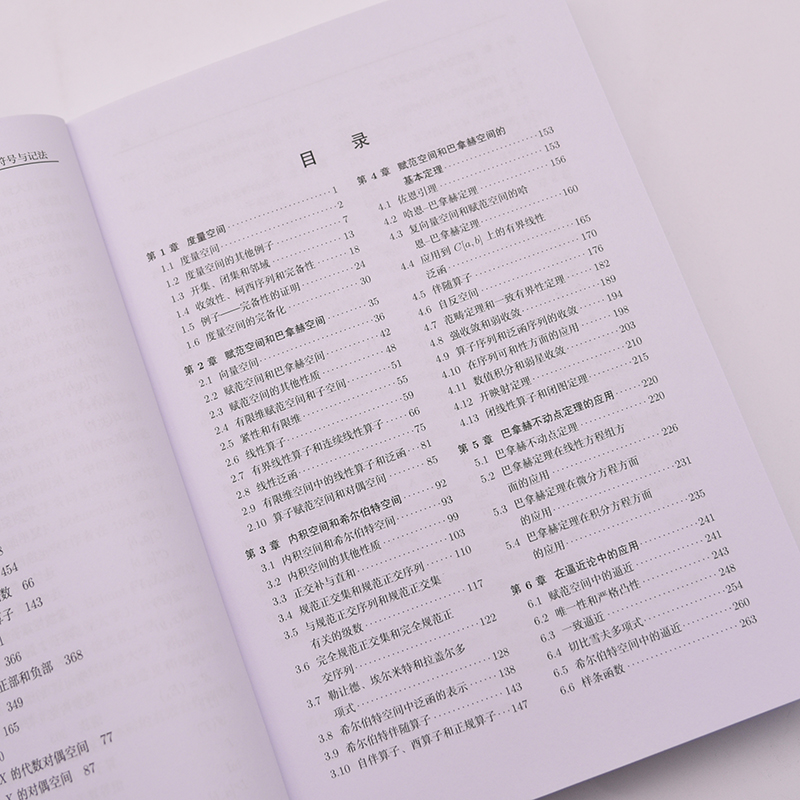 符号与记法
8
454
数 66
算子 143
366
正部和负部 368
349
165
0
X 的代数对偶空间 77
X 的对偶空间 87
目 录
第 1 章 度量空间 1
1.1 度量空间 2
1.2 度量空间的其他例子 7
1.3 开集、闭集和邻域 13
1.4 收敛性、柯西序列和完备性 18
1.5 例子——完备性的证明 24
1.6 度量空间的完备化 30
第 2 章 赋范空间和巴拿赫空间 35
2.1 向量空间 36
2.2 赋范空间和巴拿赫空间 42
2.3 赋范空间的其他性质 48
2.4 有限维赋范空间和子空间 51
2.5 紧性和有限维 55
2.6 线性算子 59
2.7 有界线性算子和连续线性算子 66
2.8 线性泛函 75
2.9 有限维空间中的线性算子和泛函 81
2.10 算子赋范空间和对偶空间 85
第 3 章 内积空间和希尔伯特空间 92
3.1 内积空间和希尔伯特空间 93
3.2 内积空间的其他性质 99
3.3 正交补与直和 103
3.4 规范正交集和规范正交序列 110
3.5 与规范正交序列和规范正交集
有关的级数 117
3.6 完全规范正交集和完全规范正
交序列 122
3.7 勒让德、埃尔米特和拉盖尔多
项式 128
3.8 希尔伯特空间中泛函的表示 138
3.9 希尔伯特伴随算子 143
3.10 自伴算子、酉算子和正规算子 147
第 4 章 赋范空间和巴拿赫空间的
基本定理 153
4.1 佐恩引理 153
4.2 哈恩–巴拿赫定理 156
4.3 复向量空间和赋范空间的哈
恩–巴拿赫定理 160
4.4 应用到 C[a, b] 上的有界线性
泛函 165
4.5 伴随算子 170
4.6 自反空间 176
4.7 范畴定理和一致有界性定理 182
4.8 强收敛和弱收敛 189
4.9 算子序列和泛函序列的收敛 194
4.10 在序列可和性方面的应用 198
4.11 数值积分和弱星收敛 203
4.12 开映射定理 210
4.13 闭线性算子和闭图定理 215
第 5 章 巴拿赫不动点定理的应用 220
5.1 巴拿赫不动点定理 220
5.2 巴拿赫定理在线性方程组方
面的应用 226
5.3 巴拿赫定理在微分方程方面
的应用 231
5.4 巴拿赫定理在积分方程方面
的应用 235
第 6 章 在逼近论中的应用 241
6.1 赋范空间中的逼近 241
6.2 唯一性和严格凸性 243
6.3 一致逼近 248
6.4 切比雪夫多项式 254
6.5 希尔伯特空间中的逼近 260
6.6 样条函数 263